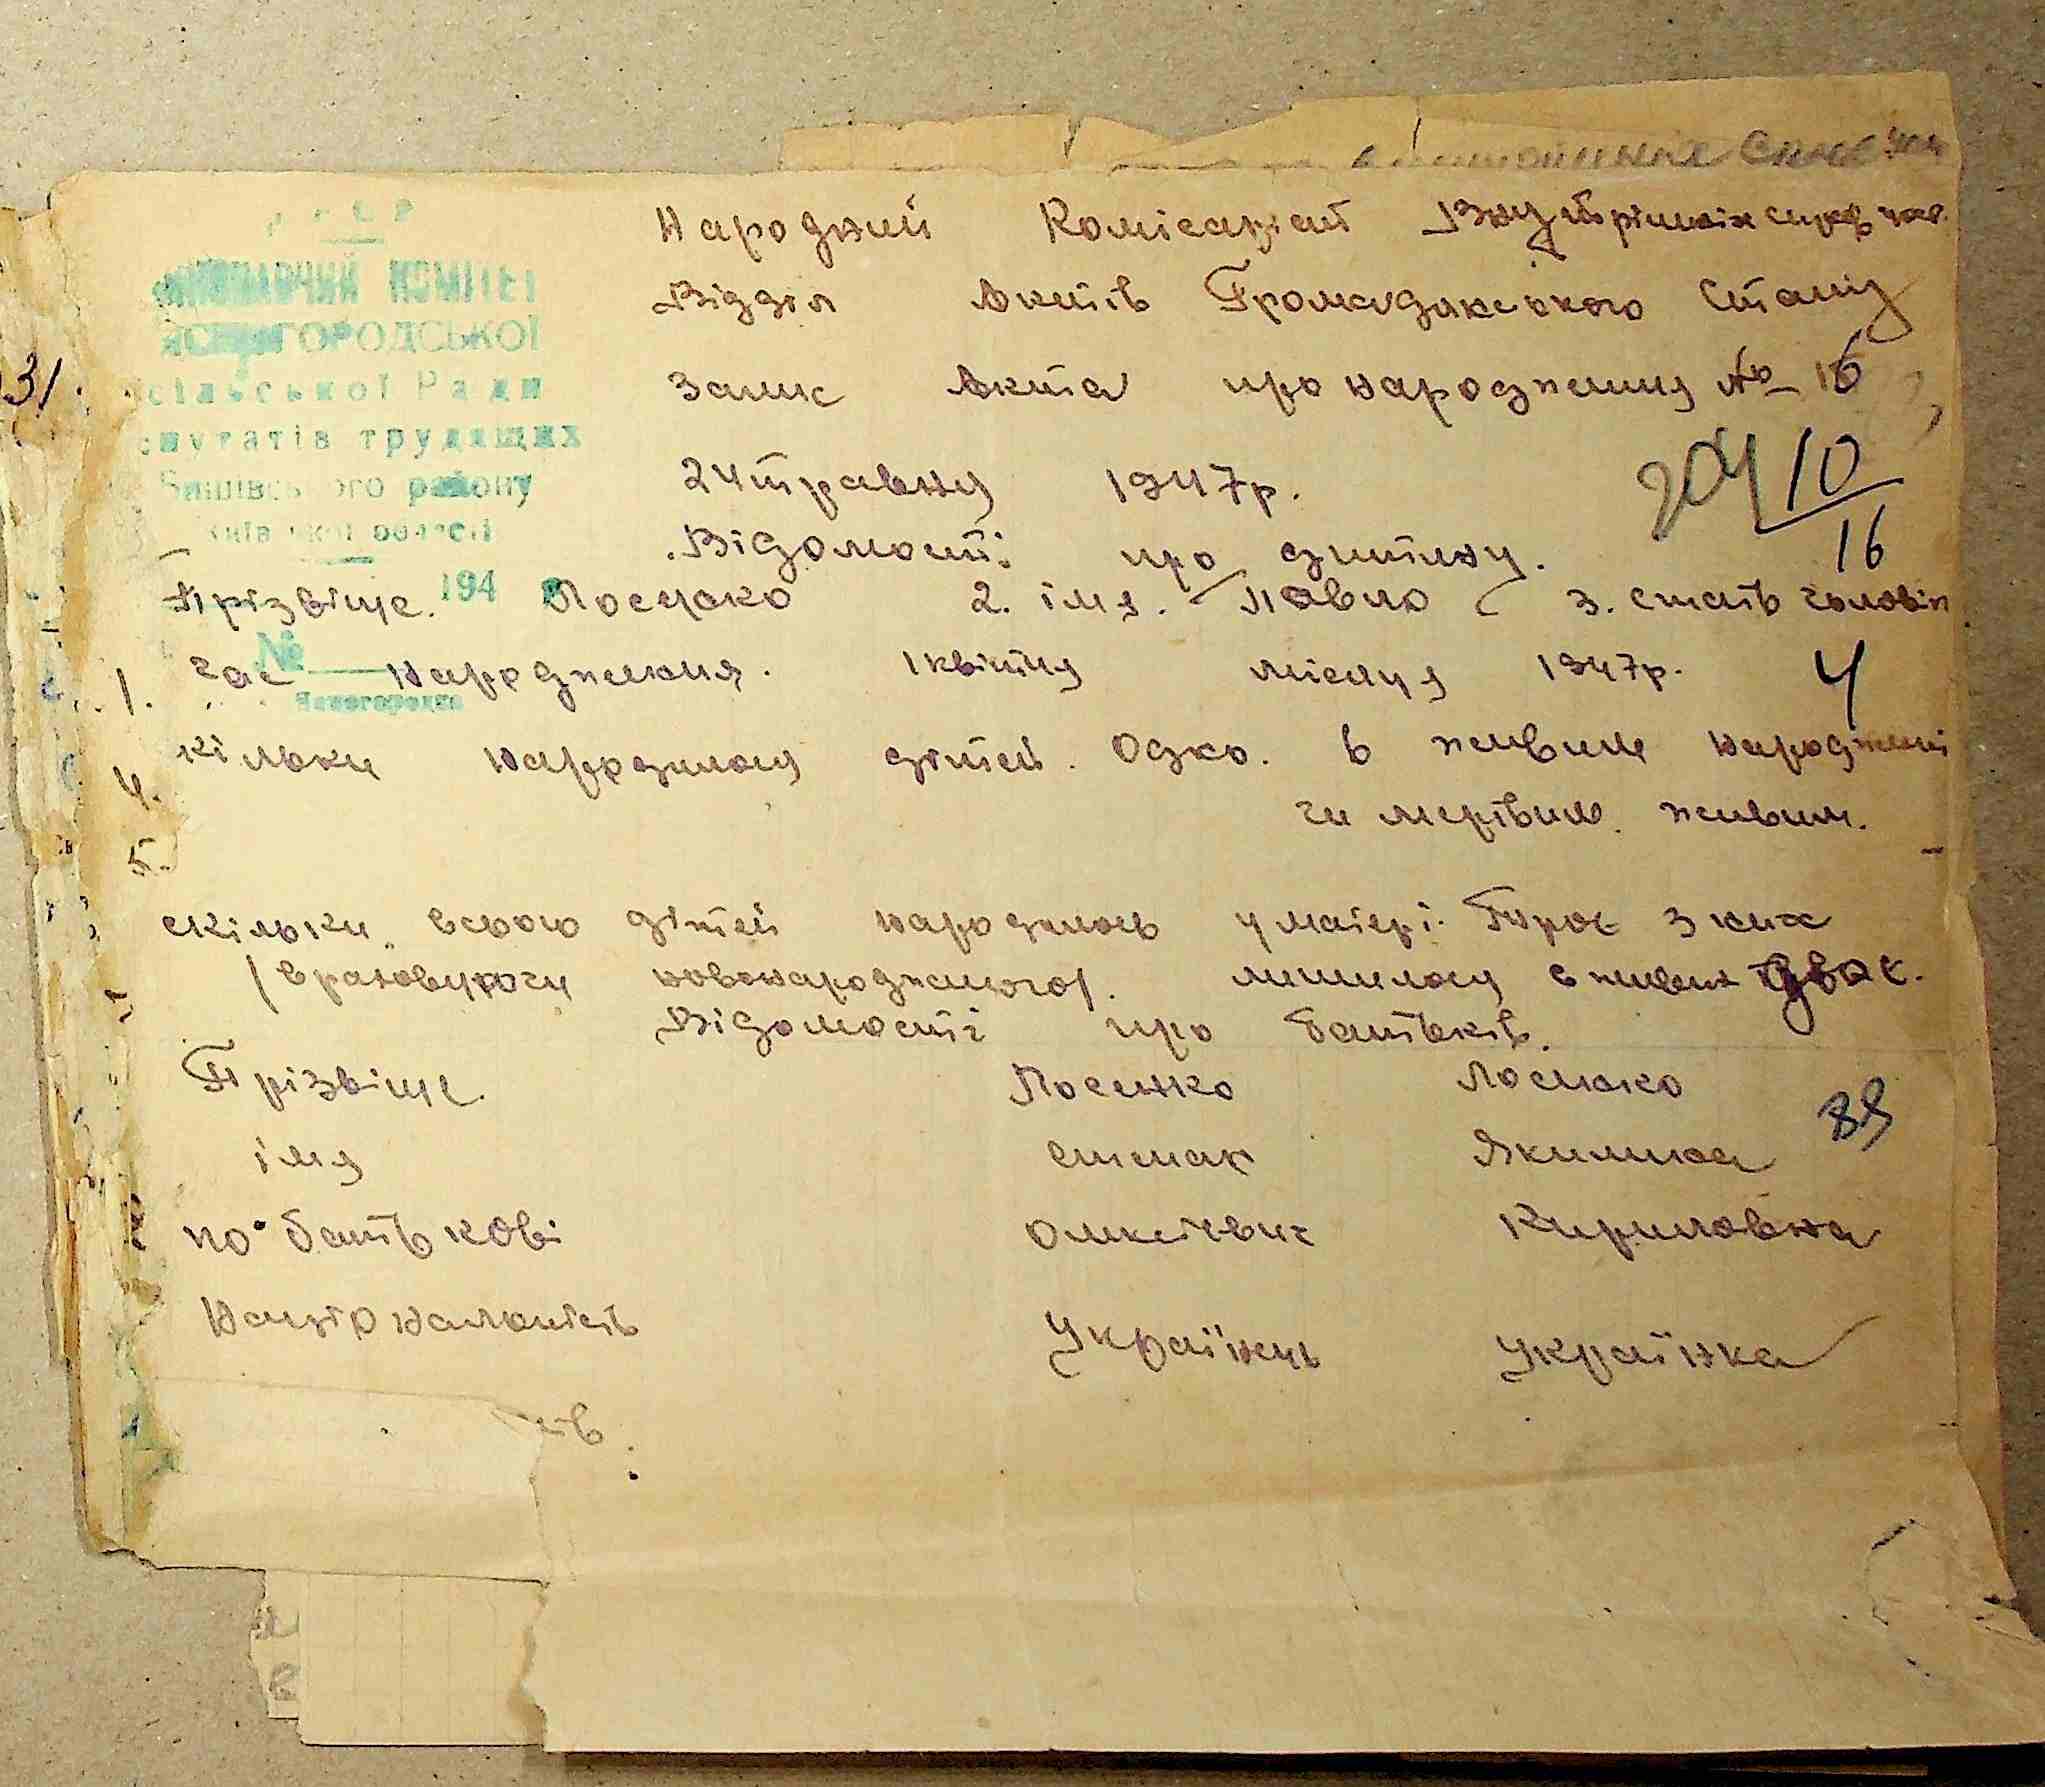 УРСР
ВИКОНАВЧИЙ КОМІТЕТ
ЯСНОГОРОДСЬКОЇ
сільської Ради
депутатів трудящих
Бишівського району
Київської області
194
№
Ясногородка
Народний Комісаріат Внутрішніх справ
Відділ Актів Громадянського Стану
Запис Акта про народження № 16
24 травня 1947р.
204 10/16
Відомості про дитину.
Прізвище. Лосенко 2. імя. Павло 3. стать чоловіч
1. час народження. 1 квітня місяця 1947р. 4
4. кількі народилося дітей. Одно. в живим народжені
чи мертвим. живим.
5.
скількі всього дітей народилось у матері. Троє з них
/враховуючи новонародженого/. лишилося в живих двоє.
Відомості про батьків.
Прізвище. Лосенко Лосенко
89
імя Степан Якилина
по батькові Олексієвич Кириловна
Націоналність Українець Українка
31.